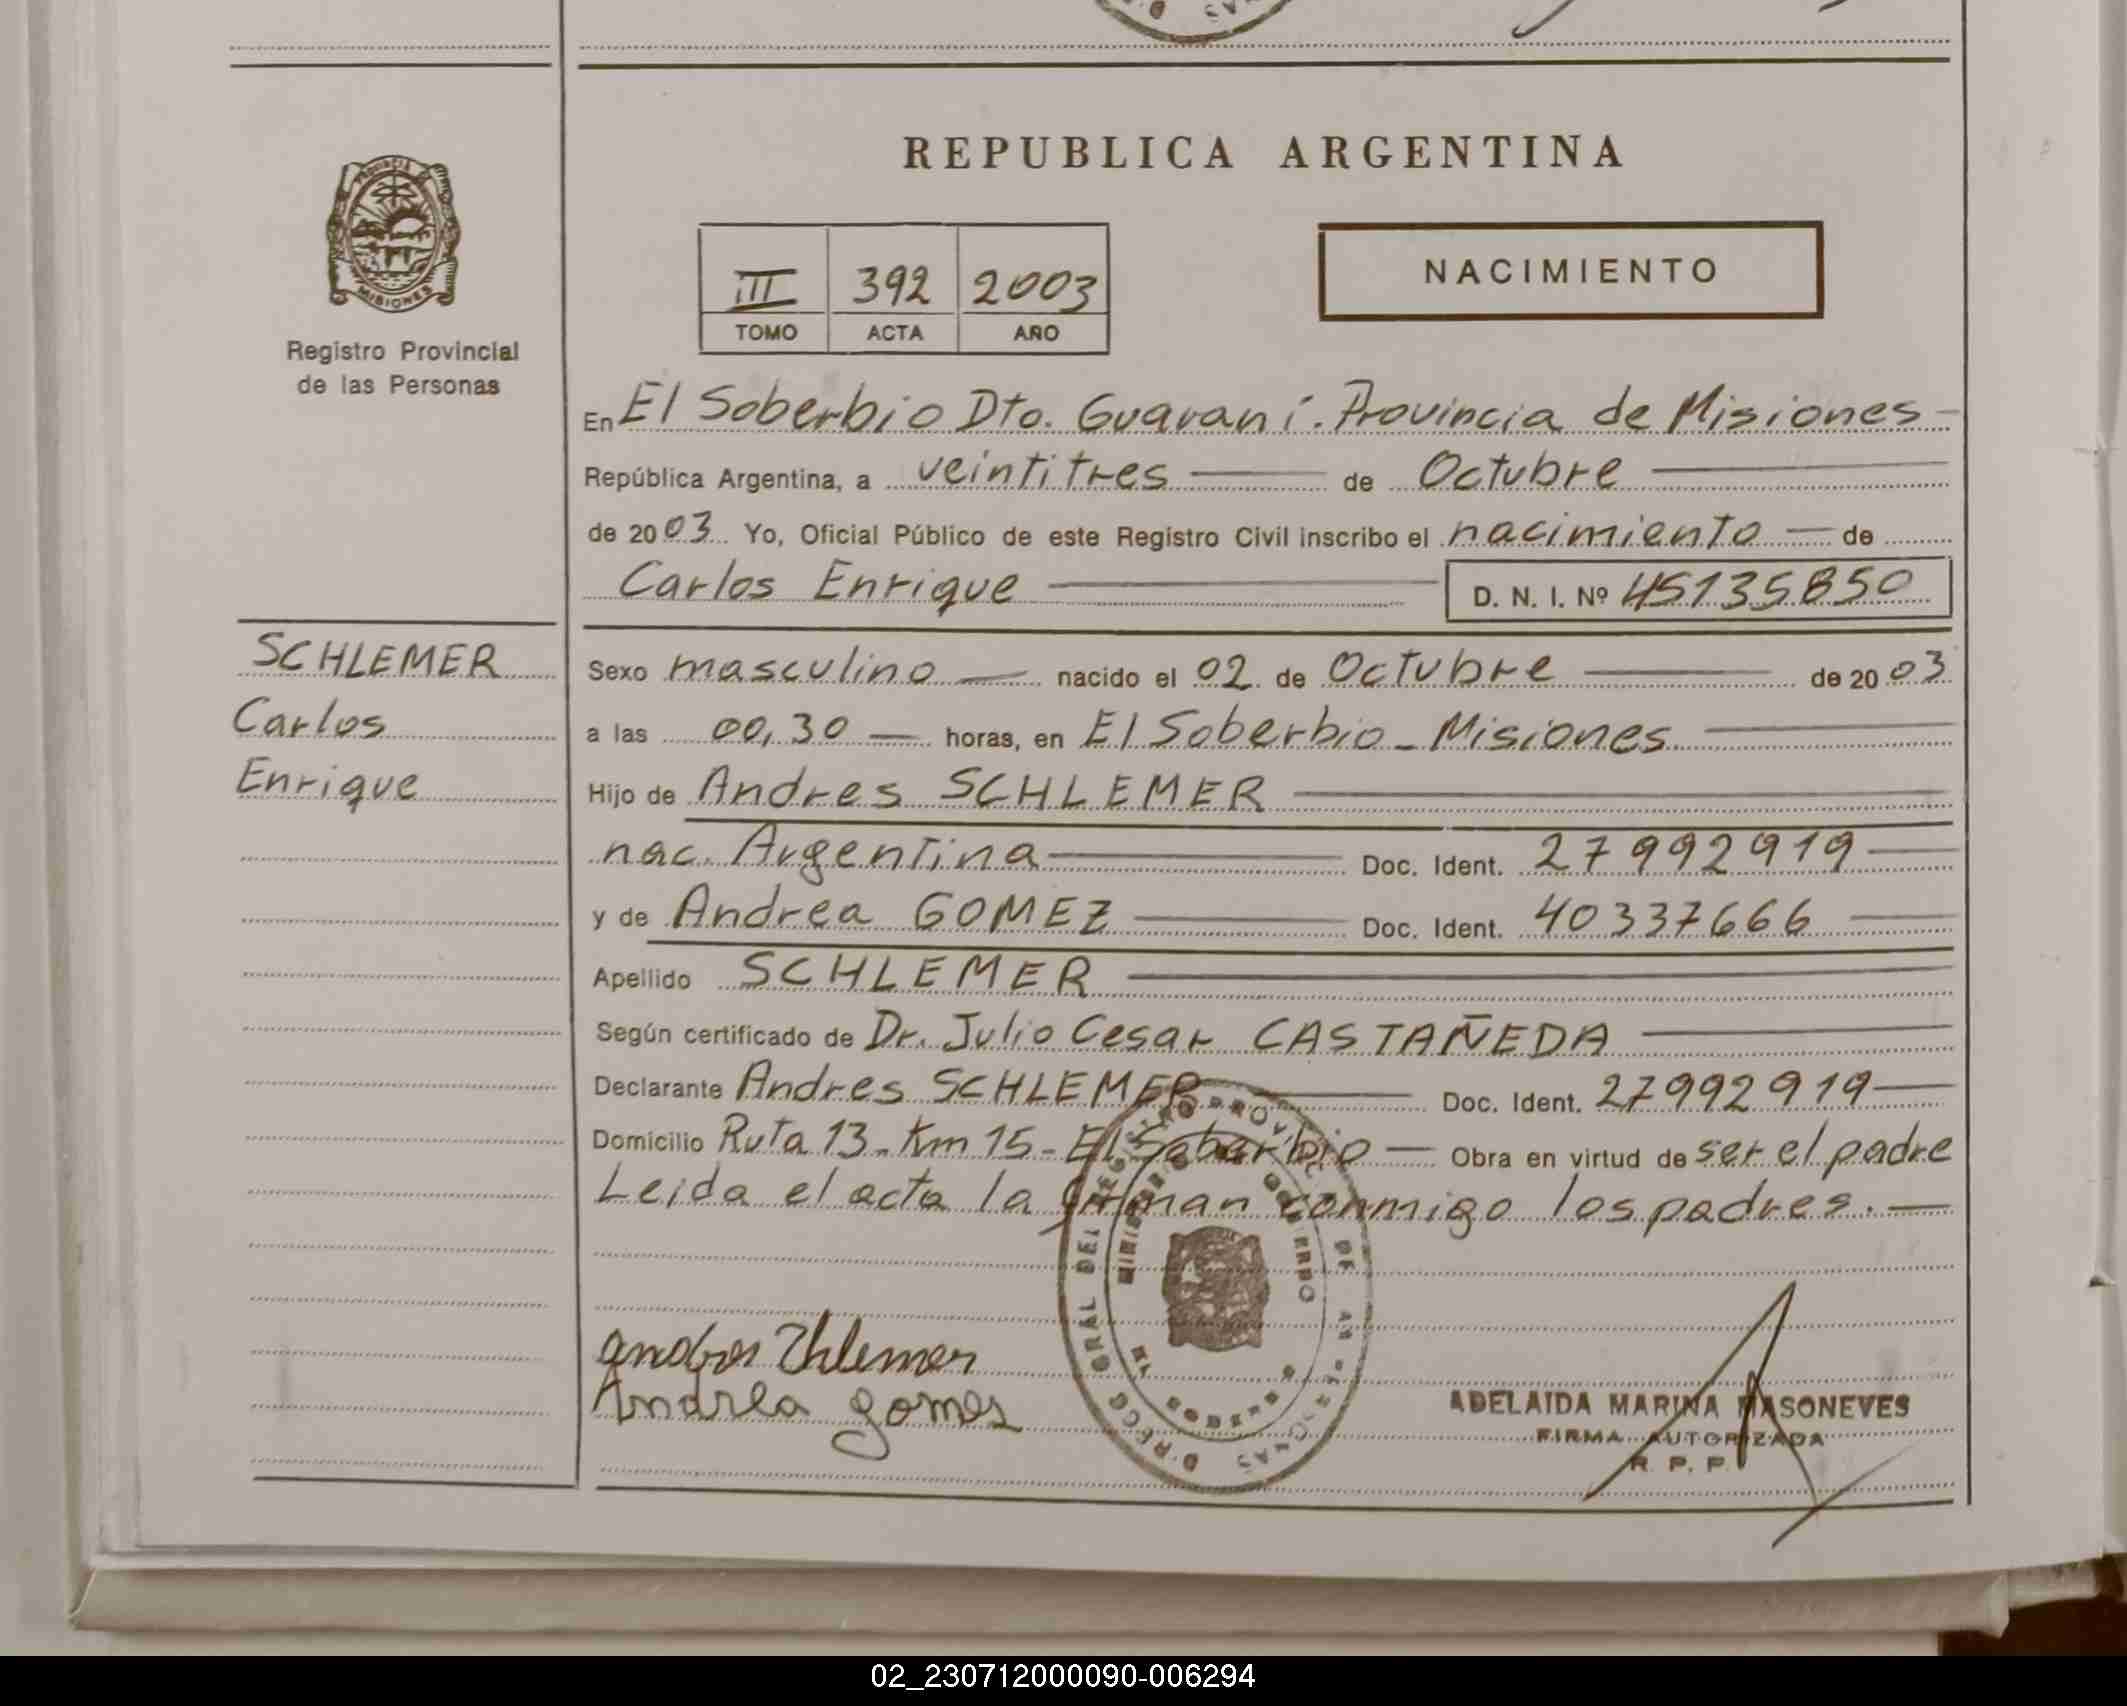 REPUBLICA ARGENTINA
PROVINCIA
MISIONES
Registro Provincial
de las Personas
III 392 2003
TOMO ACTA AÑO
NACIMIENTO
En El Soberbio Dto. Guaraní. Provincia de Misiones
República Argentina, a veintitres de Octubre
de 2003 Yo, Oficial Público de este Registro Civil inscribo el nacimiento de
Carlos Enrique D. N. I. Nº 45135850
SCHLEMER
Carlos
Enrique
Sexo masculino nacido el 02 de Octubre de 2003
a las 00,30 horas, en El Soberbio - Misiones
Hijo de Andres SCHLEMER
nac. Argentina Doc. Ident. 27992919
y de Andrea GOMEZ Doc. Ident. 40337666
Apellido SCHLEMER
Según certificado de Dr. Julio Cesar CASTAÑEDA
Declarante Andres SCHLEMER Doc. Ident. 27992919
Domicilio Ruta 13 - Km 15 - El Soberbio Obra en virtud de ser el padre
Leida el acta la firman conmigo los padres.
Andrea gomes
ADELAIDA MARINA MASONEVES
FIRMA AUTORIZADA
R. P. P.
02_230712000090-006294